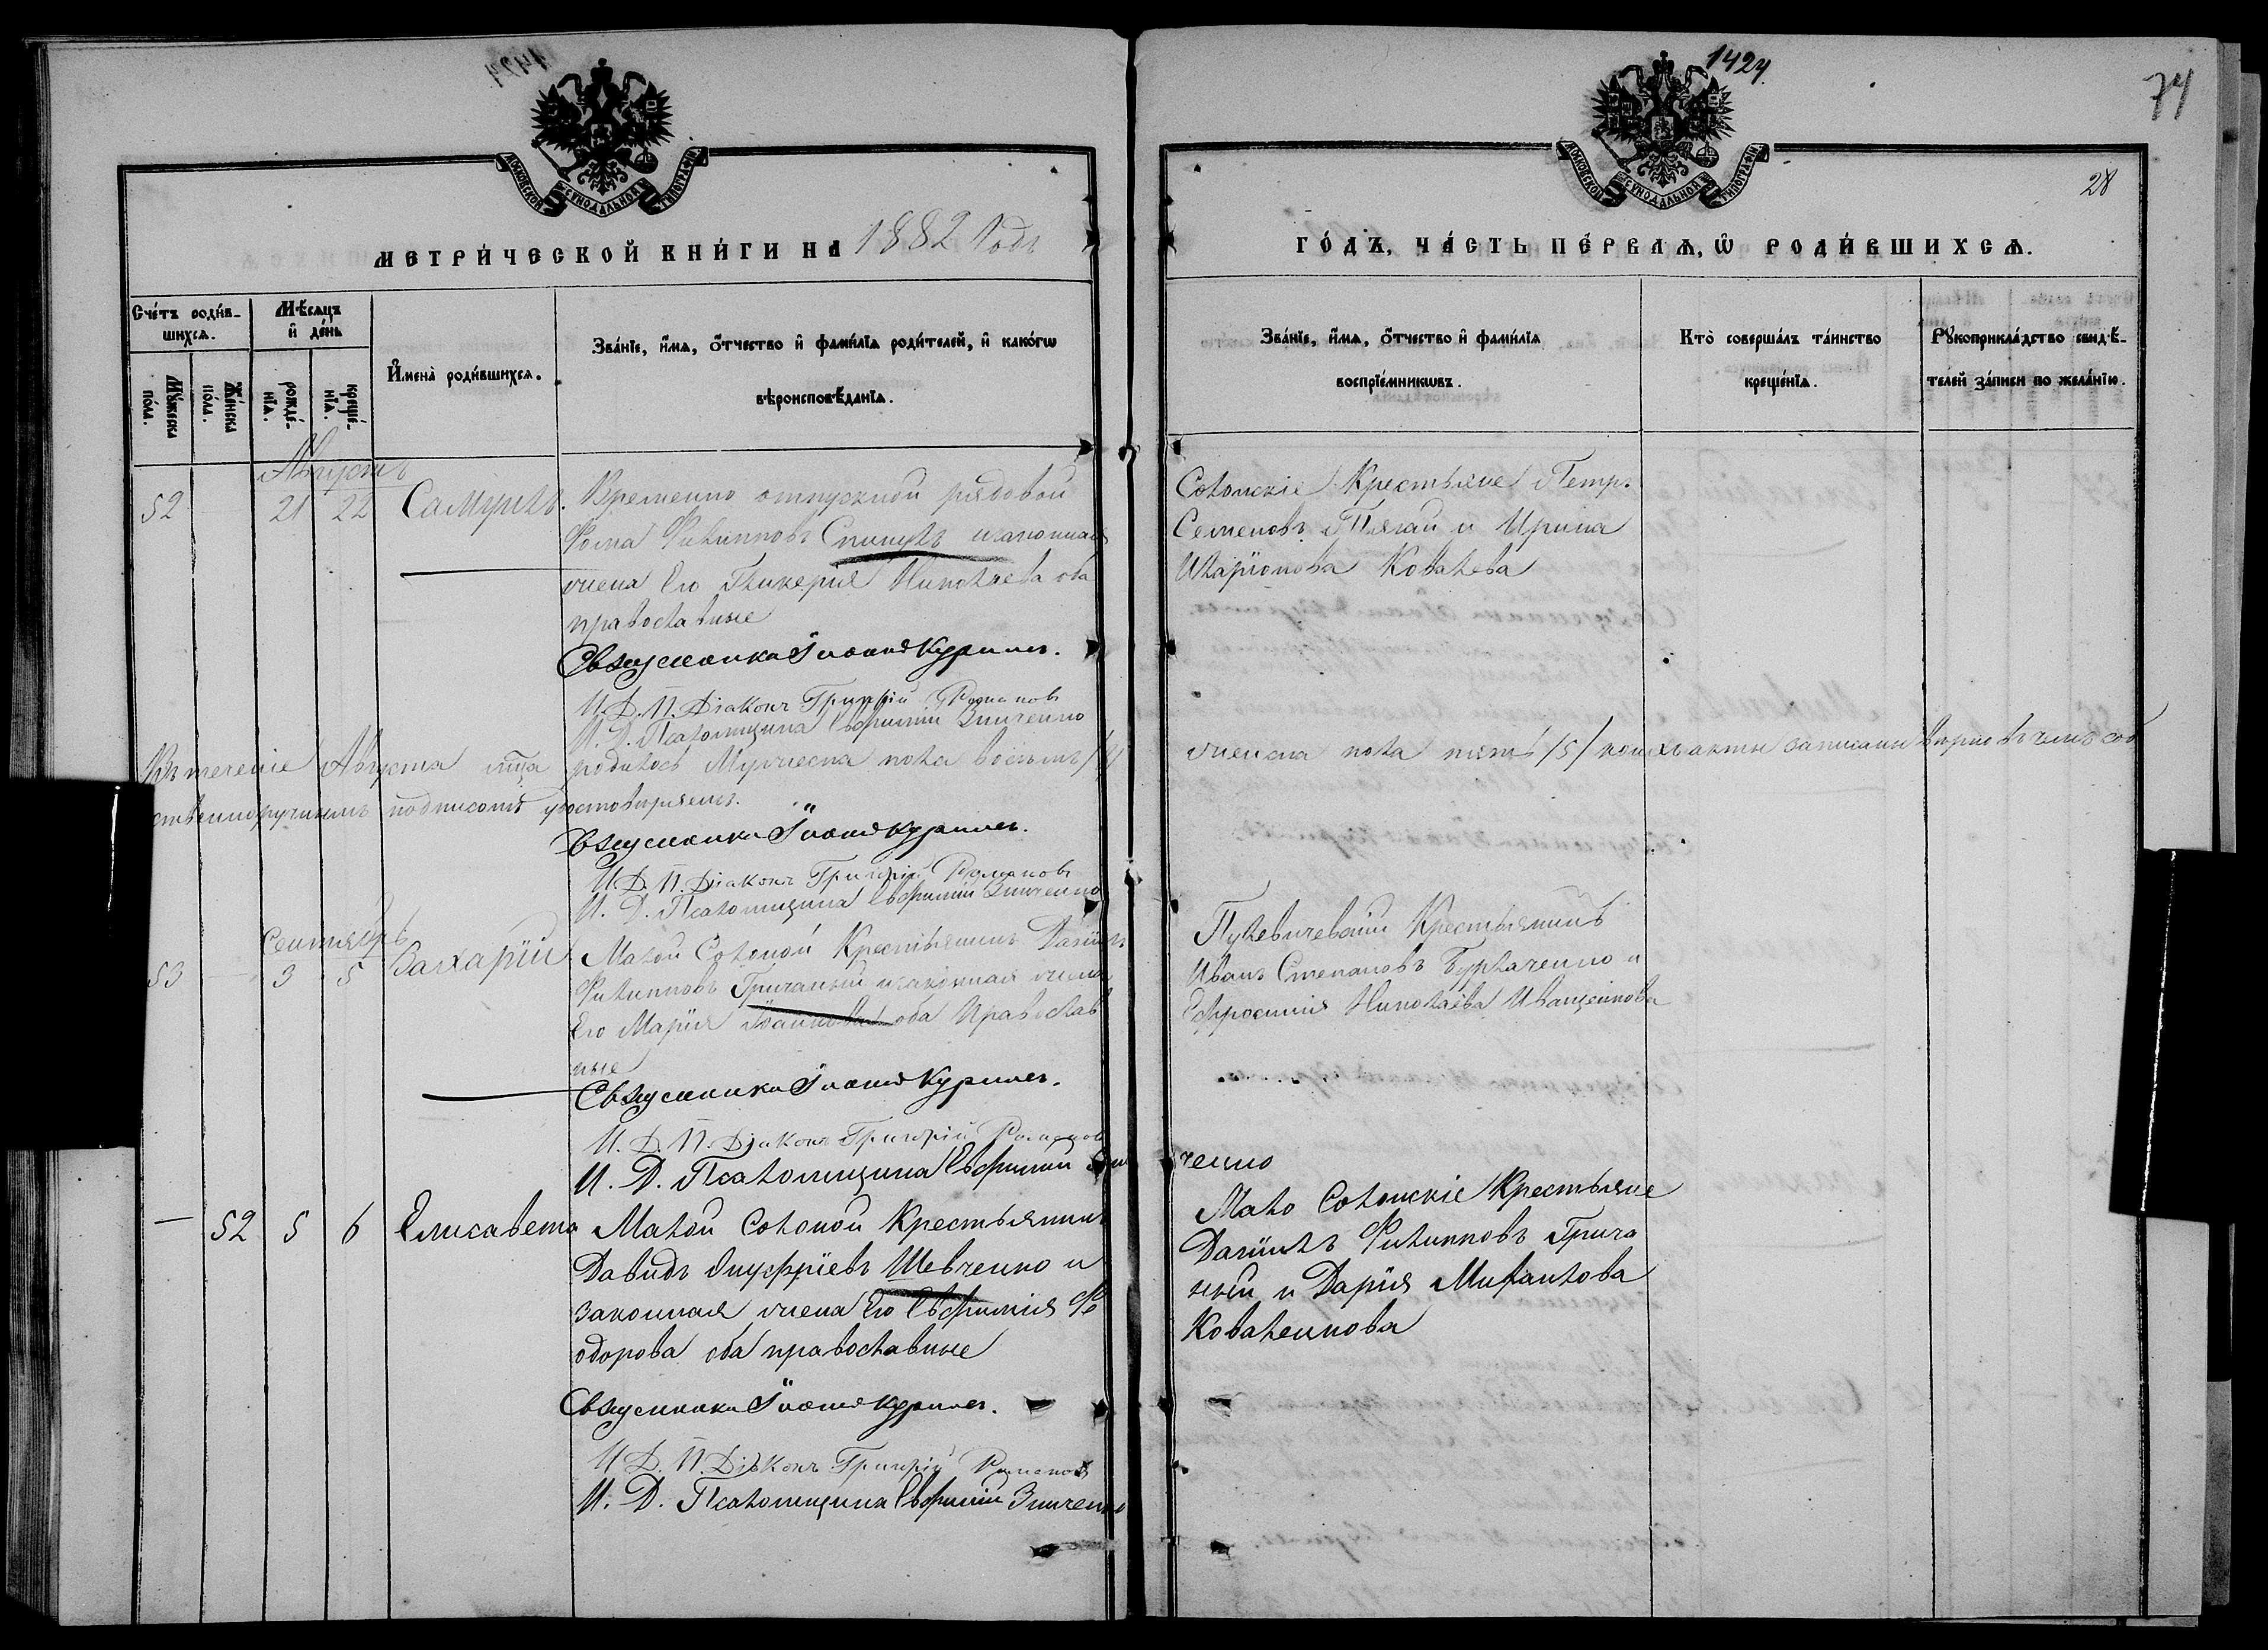 1424
74
28
МОСКОВСКОЙ СѴНОДАЛЬНОЙ ТИПОГРАФІИ
МОСКОВСКОЙ СѴНОДАЛЬНОЙ ТИПОГРАФІИ
МЕТРИ́ЧЕСКОЙ КНИ́ГИ НА 1882 Годъ
ГО́ДЪ, ЧА́СТЬ ПЕ́РВАѦ, Ѡ҆ РОДИ́ВШИХСѦ.
Сче́тъ роди́в-
шихсѧ.
Мꙋ́жеска по́ла.
Же́нска по́ла.
Мѣ́сѧцъ
и҆ де́нь
рожде́-нїѧ.
креще́-нїѧ.
И҆мена̀ роди́вшихсѧ.
Зва́нїе, и҆́мѧ, ѻ҆́тчество и҆ фами́лїѧ роди́телей, и҆ како́гѡ
вѣроисповѣ́данїѧ.
Зва́нїе, и҆́мѧ, ѻ҆́тчество и҆ фами́лїѧ
воспрїе́мникѡвъ.
Кто̀ соверша́лъ та́инство
креще́нїѧ.
Рꙋкоприкла́дство свидѣ́-
телей за́писи по жела́нїю.
Августъ
52 21 22 Самуилъ. Временно отпускной рядовой
Фома Филипповъ Спицъ и законная
жена Его Гликерия Николаева оба
православные
Священникъ Іоаннъ Куриленко.
И. Д. П. Діаконъ Григорій Романовъ
И. Д. Псаломщика Евфимій Зинченко
Солонскіе Крестьяне Петръ
Семеновъ Пягай и Ирина
Иларіонова Ковалева
Въ теченіе Августа м̃ца родилось Мужеска пола восемь /8/ женска пола пять /5/ коихъ акты записаны верно въ чемъ соб
ственноручнымъ подписомъ удостоверяемъ.
Священникъ Іоаннъ Куриленко.
И. Д. П. Діаконъ Григорій Романовъ
И. Д. Псаломщика Евфимій Зинченко
Сентябрь
53 — 3 5 Захарій Малой Солоной Крестьянинъ Даніилъ
Филипповъ Гричаный и законная жена
Его Марія Іоаннова оба Православ
ные
Священникъ Іоаннъ Куриленко.
И. Д. П. Діаконъ Григорій Романовъ
И. Д. Псаломщика Евфимій Зинченко
Крестьянинъ
Иванъ Степановъ Бурлаченко и
Ефросинія Николаева Иващенкова
— 52 5 6 Елисавета Малой Солоной Крестьянинъ
Давидъ Онуфріевъ Шевченко и
законная жена Его Евфимія Фе
одорова оба православные
Священникъ Іоаннъ Куриленко.
И. Д. П. Діаконъ Григорій Романовъ
И. Д. Псаломщика Евфимій Зинченко
Мало Солонскіе Крестьяне
Даніилъ Филипповъ Грича
ный и Дарія Михаилова
Коваленкова